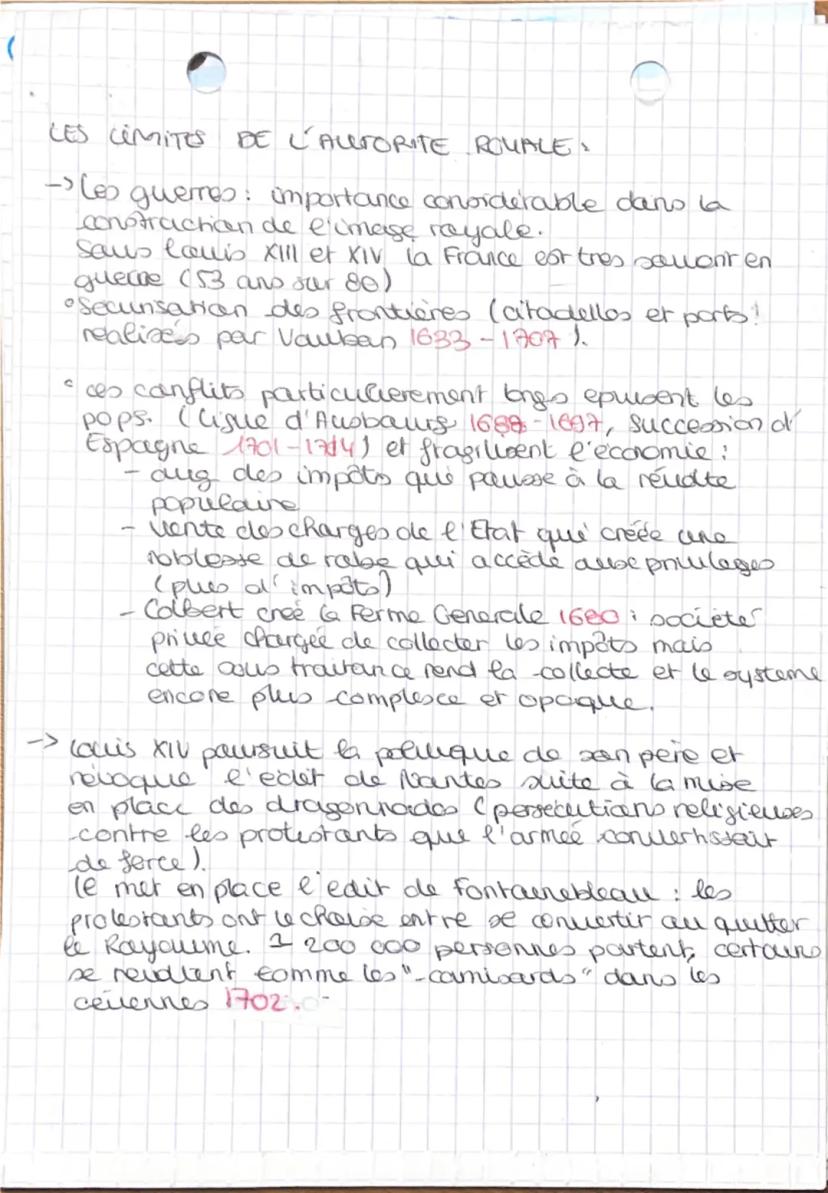 LES LIMITES DE L'AUTORITE ROYALE :
-> Les guerres : importance considérable dans la
construction de l'image royale.
Sous Louis XIII et XIV la France est tres souvent en
guerre (53 ans sur 80)
° Securisation des frontières (citadelles et ports
realisés par Vauban 1633 - 1707 ).
° ces conflits particulierement longs epuisent les
pops. (Ligue d'Ausbourg 1688 - 1697, succession d'
Espagne 1701 - 1714) et fragilisent l'économie :
- aug des impôts qui pousse à la révolte
populaire
- Vente des charges de l'Etat qui créée une
noblesse de robe qui accède aux privileges
(plus d'impôts)
- Colbert créé la Ferme Generale 1680 : société
privée chargée de collecter les impôts mais
cette sous traitance rend la collecte et le systeme
encore plus complexe et opaque.
-> Louis XIV poursuit la politique de son pere et
révoque l'edit de Nantes suite à la mise
en place des dragonnades (persécutions religieuses
contre les protestants que l'armée convertissait
de force).
Il met en place l'edit de Fontainebleau : les
protestants ont le choise entre se convertir ou quitter
le Royaume. 200 000 personnes partent, certains
se revoltent comme les "camisards" dans les
cévennes 1702.